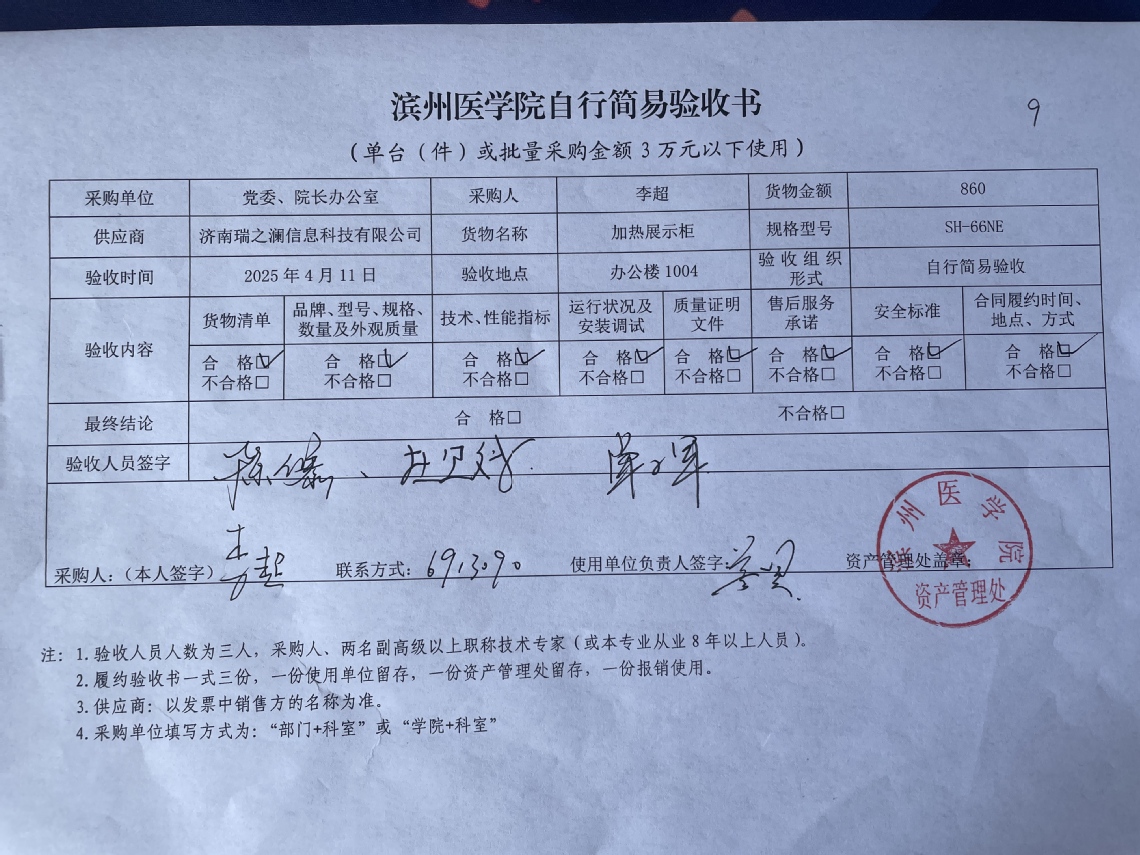 滨州医学院自行简易验收书
9
（单台（件）或批量采购金额 3 万元以下使用）
采购单位 党委、院长办公室 采购人 李超 货物金额 860
供应商 济南瑞之澜信息科技有限公司 货物名称 加热展示柜 规格型号 SH-66NE
验收时间 2025 年 4 月 11 日 验收地点 办公楼 1004 验收组织形式 自行简易验收
验收内容 货物清单 品牌、型号、规格、数量及外观质量 技术、性能指标 运行状况及安装调试 质量证明文件 售后服务承诺 安全标准 合同履约时间、地点、方式
合 格☑ 合 格☑ 合 格☑ 合 格☑ 合 格☑ 合 格☑ 合 格☑ 合 格☑
不合格□ 不合格□ 不合格□ 不合格□ 不合格□ 不合格□ 不合格□ 不合格□
最终结论 合 格□ 不合格□
验收人员签字
采购人：（本人签字） 李超 联系方式：6913090 使用单位负责人签字： 资产管理处盖章：
滨州医学院
资产管理处
注：1. 验收人员人数为三人，采购人、两名副高级以上职称技术专家（或本专业从业 8 年以上人员）。
2. 履约验收书一式三份，一份使用单位留存，一份资产管理处留存，一份报销使用。
3. 供应商：以发票中销售方的名称为准。
4. 采购单位填写方式为：“部门+科室”或“学院+科室”